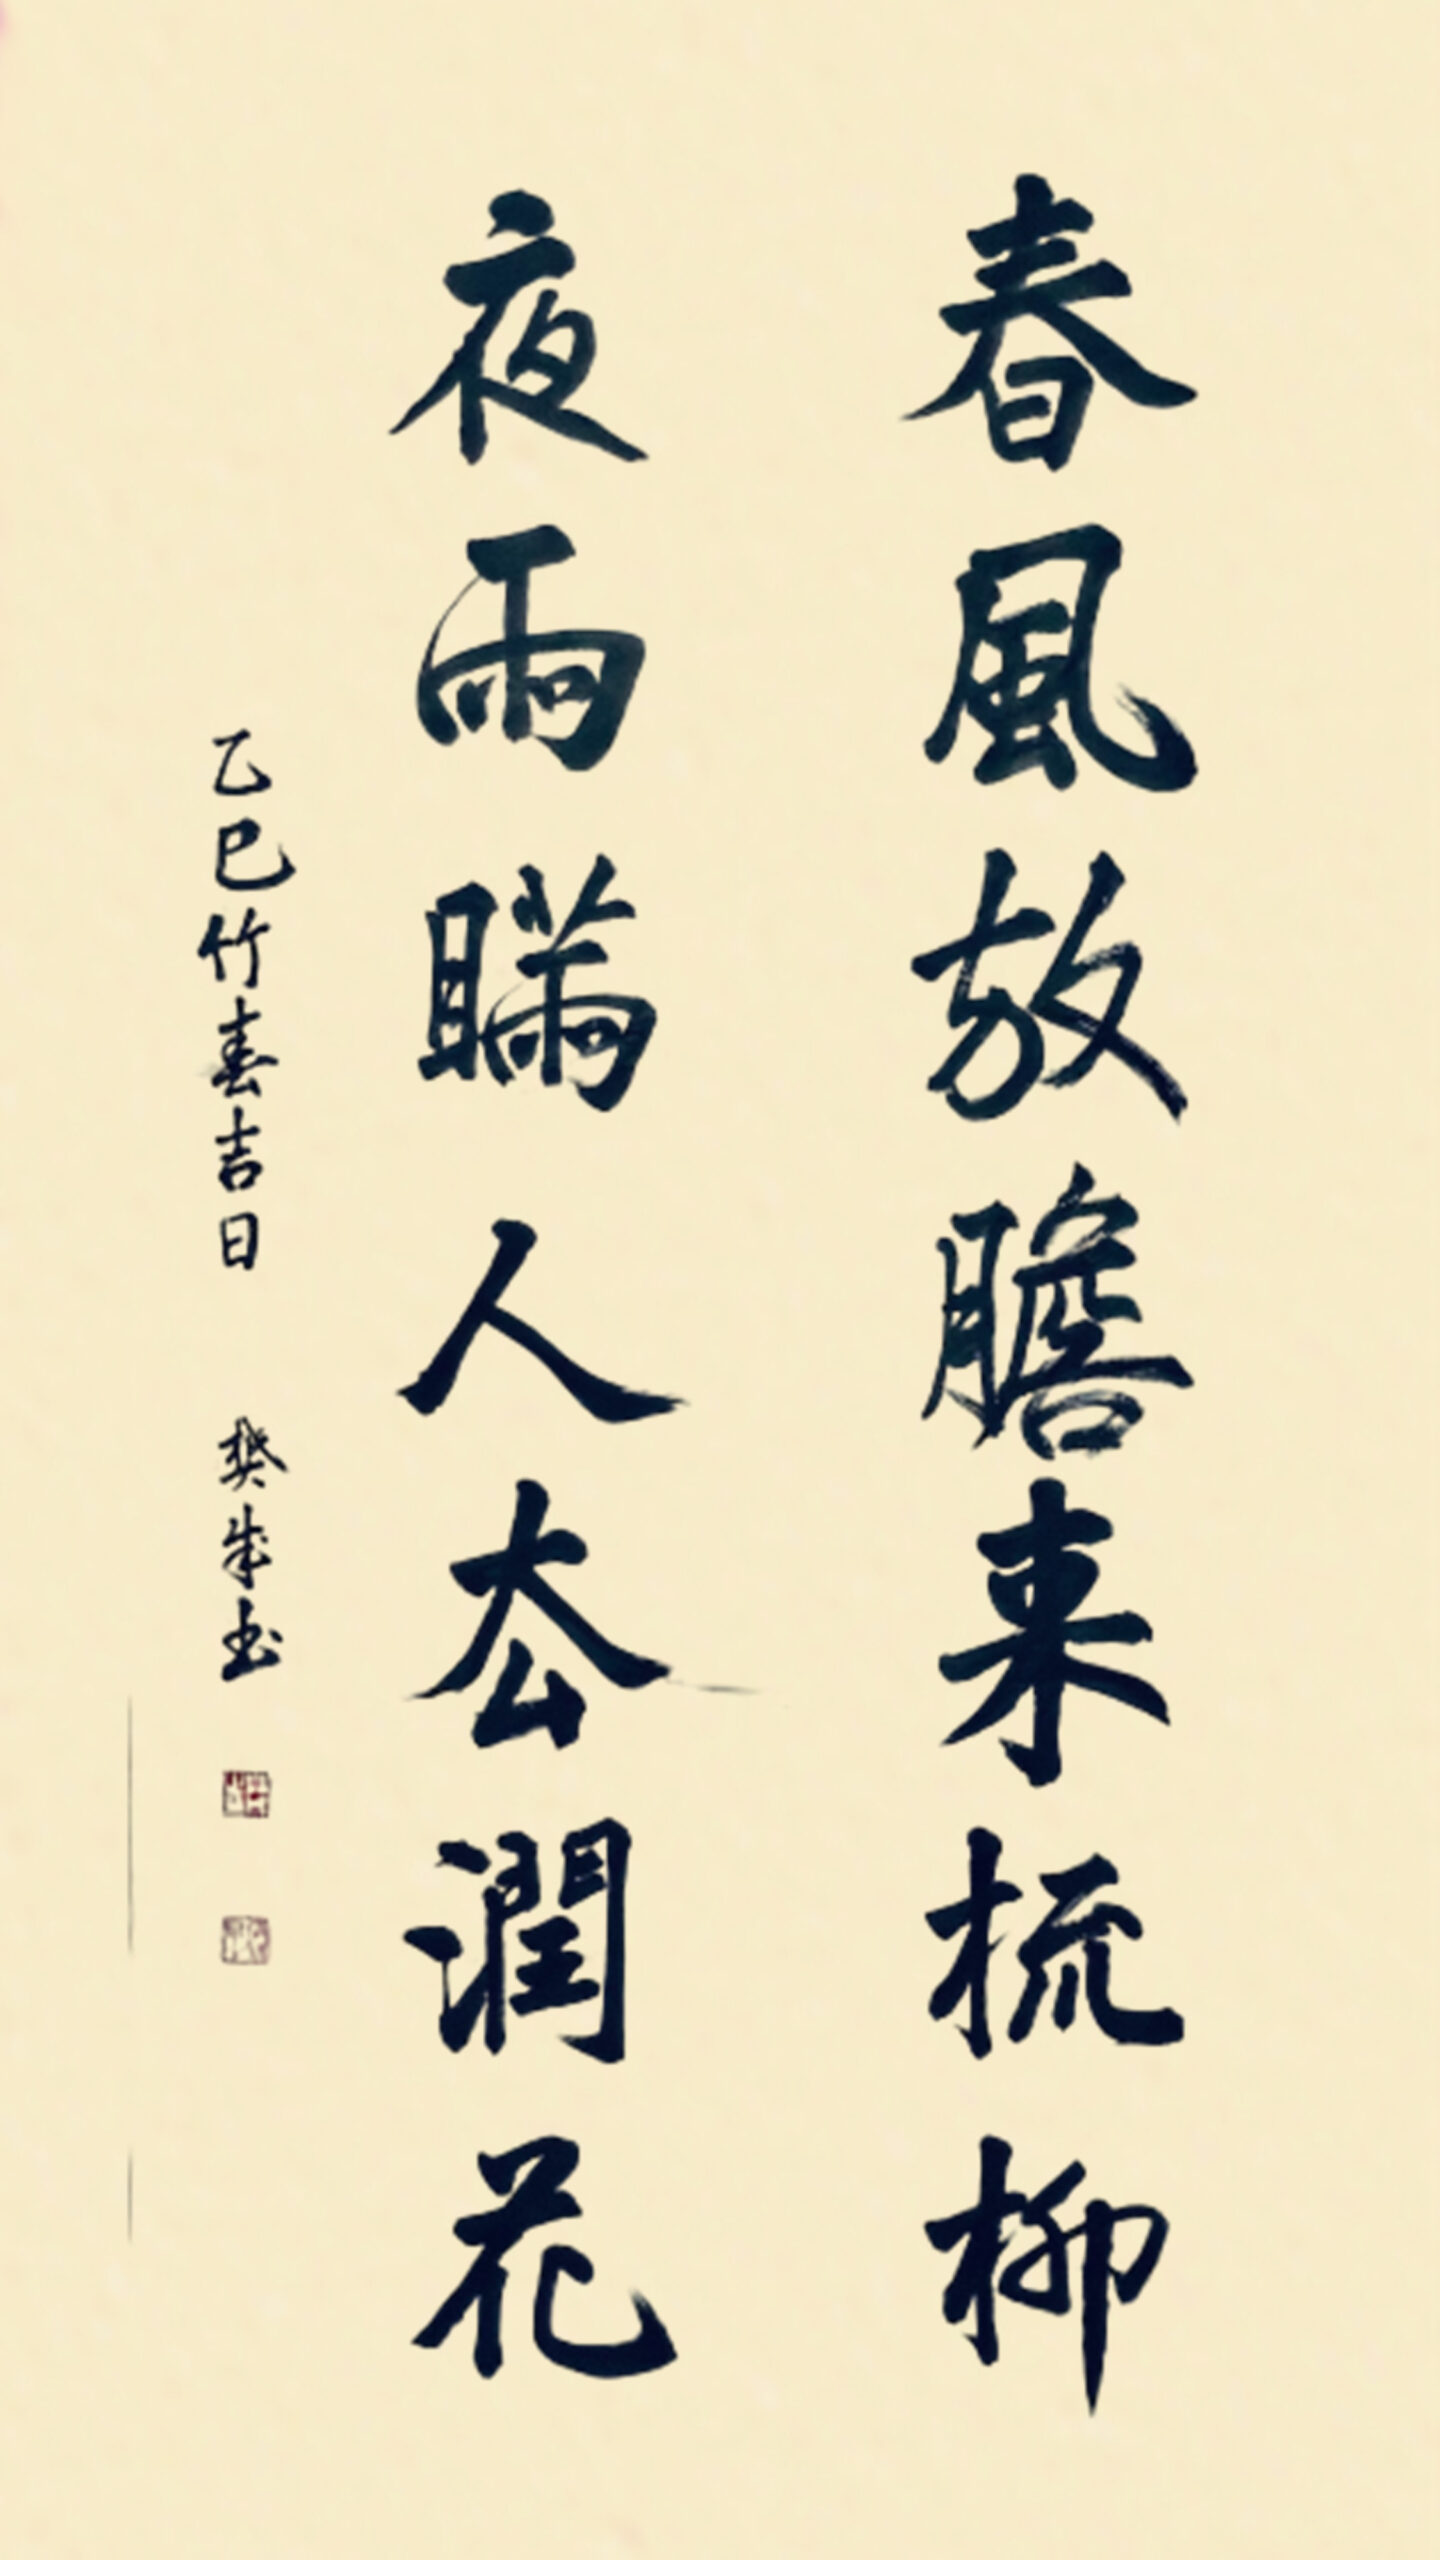 春風放膽来梳柳
夜雨瞞人厺潤花
乙巳竹春吉日 樊成书